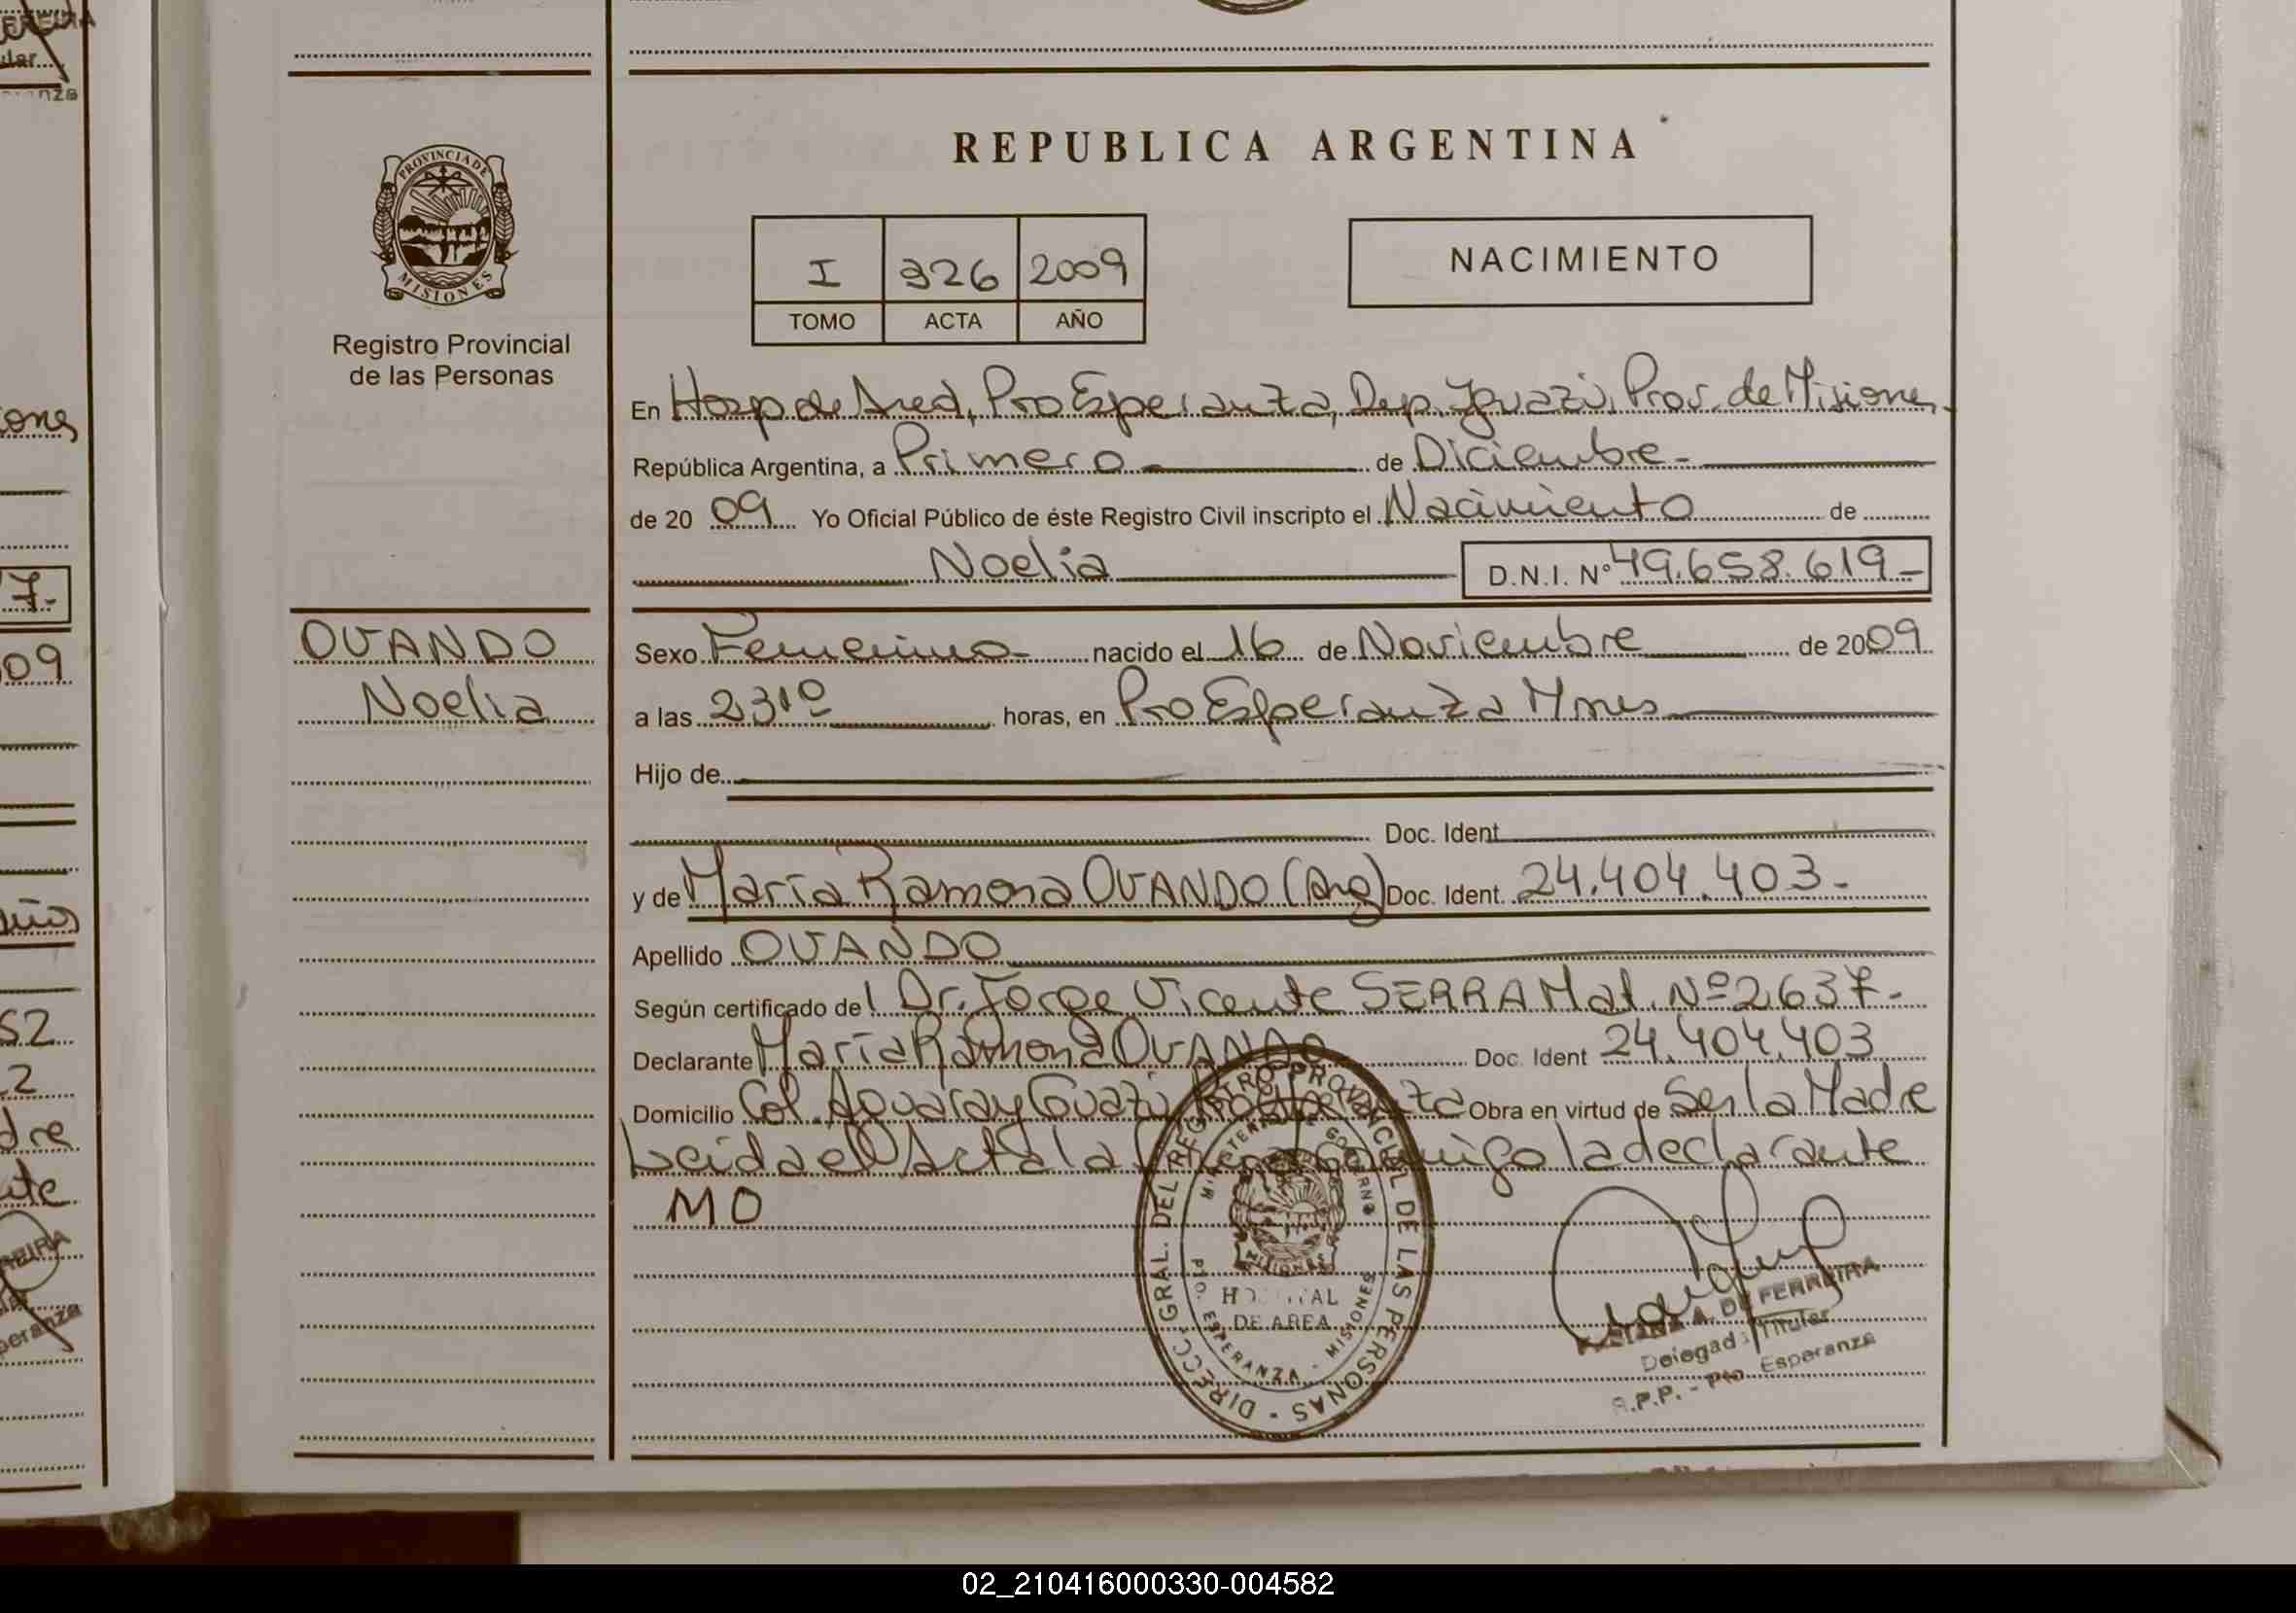 REPUBLICA ARGENTINA
PROVINCIA DE
MISIONES
Registro Provincial
de las Personas
I 326 2009
TOMO ACTA AÑO
NACIMIENTO
En Hosp de Area, Pto Esperanza, Dep. Iguazú, Prov. de Misiones.
República Argentina, a Primero de Diciembre
de 20 09 Yo Oficial Público de éste Registro Civil inscripto el Nacimiento de
Noelia D.N.I. Nº 49.658.619-
OVANDO
Noelia
Sexo Femenino nacido el 16 de Noviembre de 2009
a las 23¹⁰ horas, en Pto Esperanza Mnes
Hijo de
Doc. Ident
y de María Ramona OVANDO (Arg) Doc. Ident. 24.404.403-
Apellido OVANDO
Según certificado del Dr. Jorge Vicente SERRA Mat. Nº 2.637-
Declarante María Ramona OVANDO Doc. Ident 24.404.403
Domicilio Col. Aguaray Guazú Pto Esperanza Obra en virtud de Ser la Madre
Leida el Acta la conmigo la declarante
MO
DIRECC. GRAL. DEL REGISTRO PROVINCIAL DE LAS PERSONAS
MINISTERIO DE GOBIERNO
MISIONES
HOSPITAL
DE AREA
PTO. ESPERANZA - MISIONES
A. DE FERREIRA
Delegada Titular
R.P.P. - Pto. Esperanza
iones
7.
09
52
2
dre
nte
02_210416000330-004582